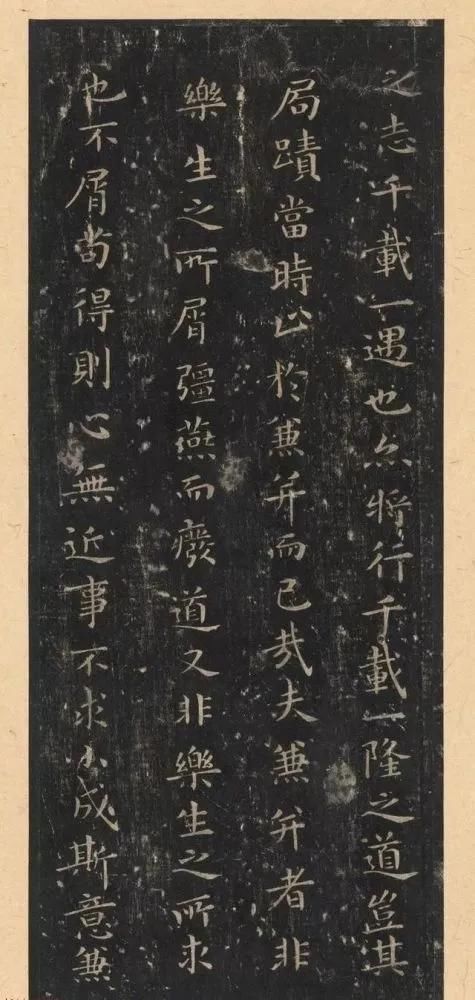 之志千載一遇也亦將行千載一隆之道豈其
局蹟當時止於兼并而已哉夫兼并者非
樂生之所屑彊燕而廢道又非樂生之所求
也不屑苟得則心無近事不求小成斯意兼